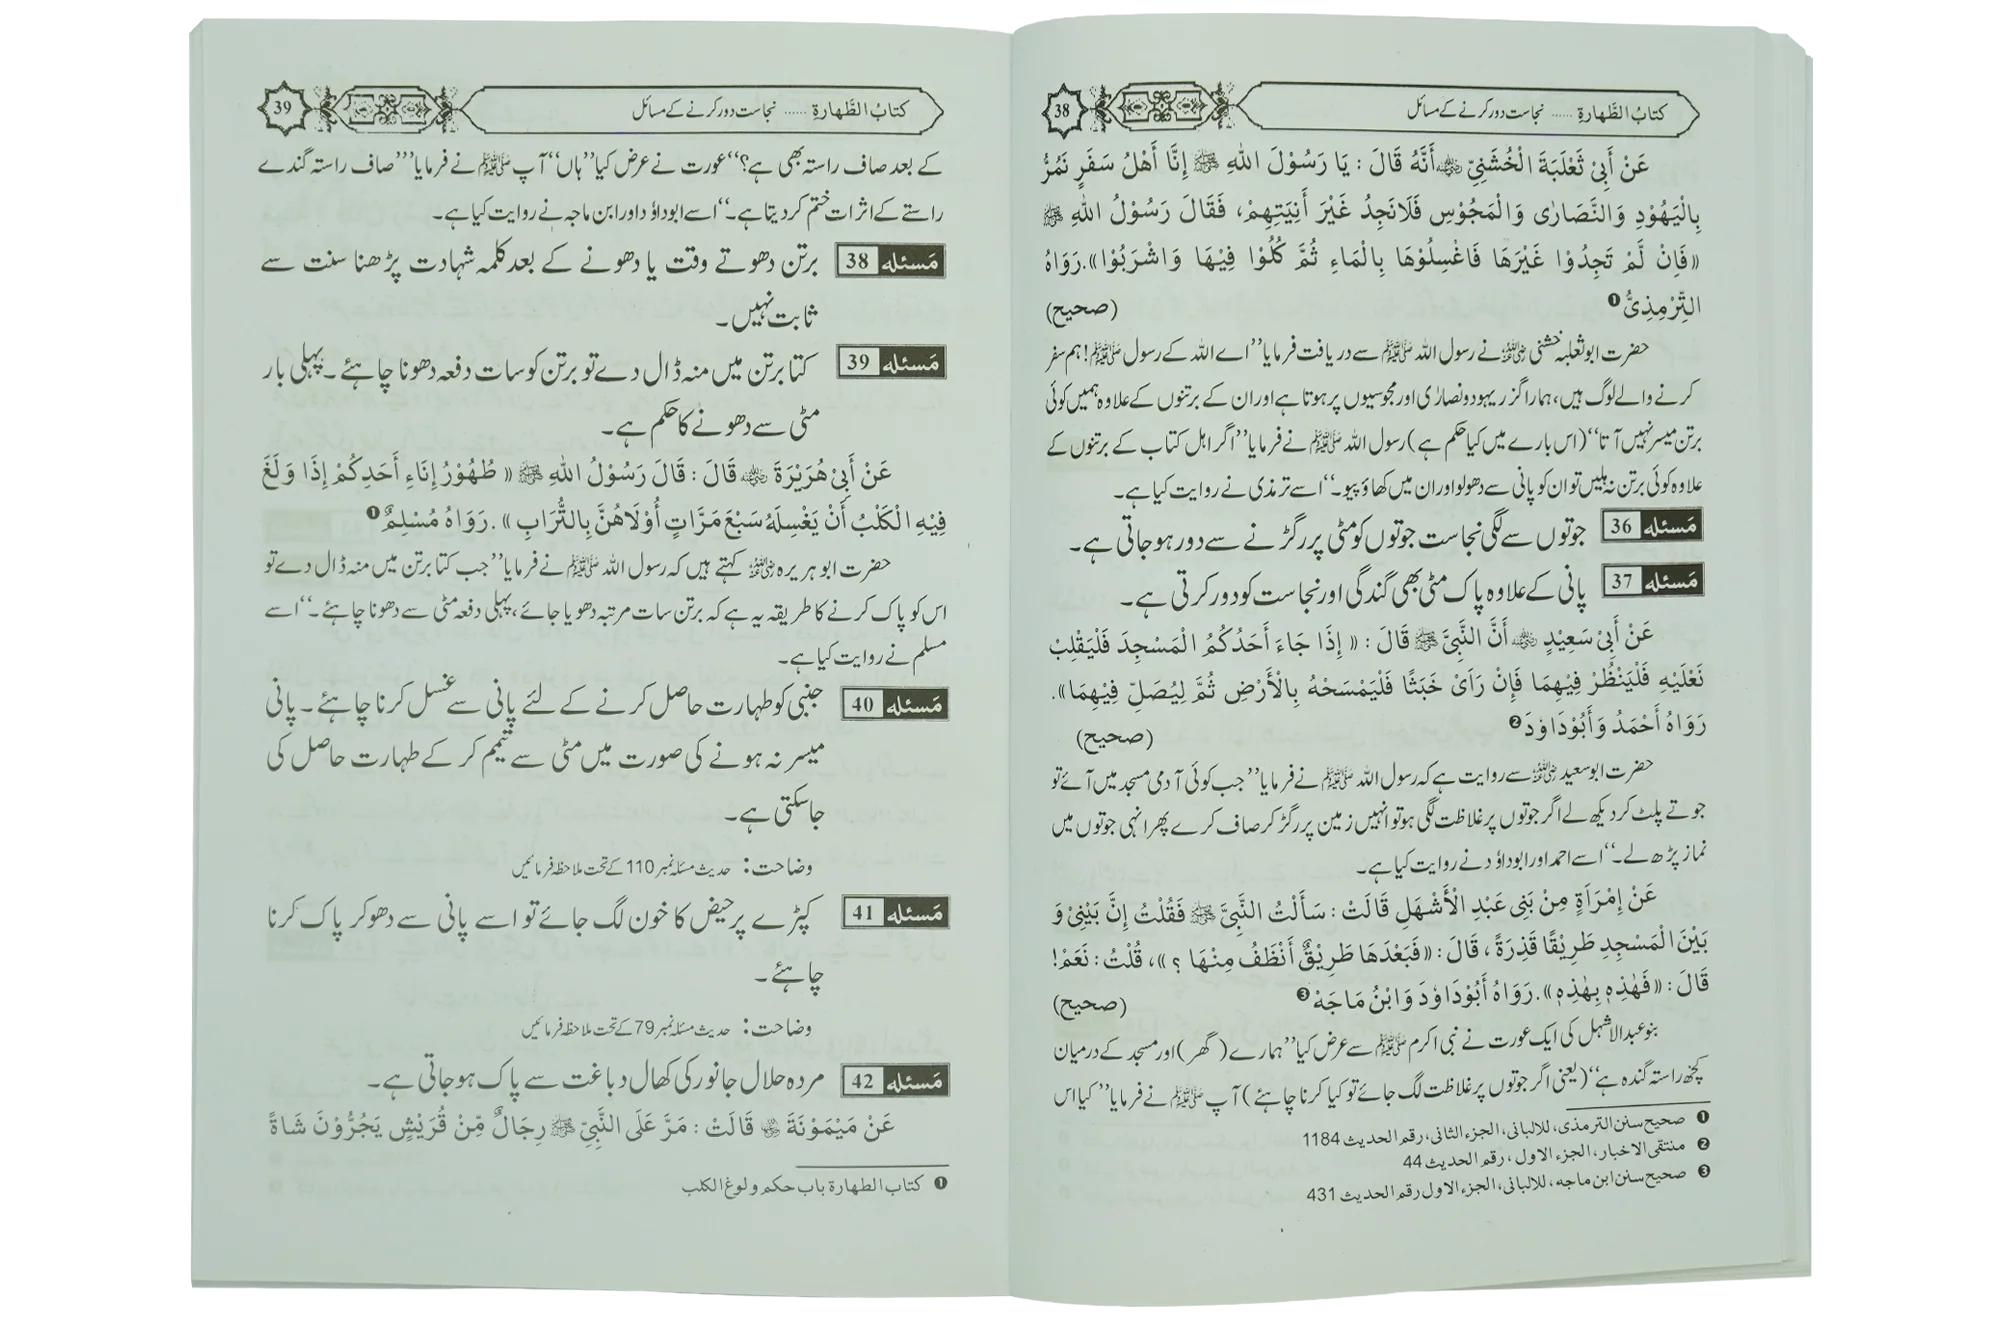 38
کتابُ الطَّهارةِ ...... نجاست دور کرنے کے مسائل
عَنْ أَبِيْ ثَعْلَبَةَ الْخُشَنِيِّ ﷜ أَنَّهُ قَالَ : يَا رَسُوْلَ اللهِ ﷺ إِنَّا أَهْلُ سَفَرٍ نَمُرُّ
بِالْيَهُوْدِ وَالنَّصَارٰى وَالْمَجُوْسِ فَلَانَجِدُ غَيْرَ أٰنِيَتِهِمْ، فَقَالَ رَسُوْلُ اللهِ ﷺ
«فَاِنْ لَّمْ تَجِدُوْا غَيْرَهَا فَاغْسِلُوْهَا بِالْمَاءِ ثُمَّ كُلُوْا فِيْهَا وَاشْرَبُوْا». رَوَاهُ
التِّرْمِذِيُّ ❶ (صحيح)
حضرت ابو ثعلبہ خشنی ﷜ نے رسول اللہ ﷺ سے دریافت فرمایا ’’اے اللہ کے رسول ﷺ! ہم سفر
کرنے والے لوگ ہیں، ہمارا گزر یہود و نصارٰی اور مجوسیوں پر ہوتا ہے اور ان کے برتنوں کے علاوہ ہمیں کوئی
برتن میسر نہیں آتا‘‘ (اس بارے میں کیا حکم ہے) رسول اللہ ﷺ نے فرمایا ’’اگر اہل کتاب کے برتنوں کے
علاوہ کوئی برتن نہ ملیں تو ان کو پانی سے دھولو اور ان میں کھاؤ پیو۔‘‘ اسے ترمذی نے روایت کیا ہے۔
مَسئلہ 36 جوتوں سے لگی نجاست جوتوں کو مٹی پر رگڑنے سے دور ہو جاتی ہے۔
مَسئلہ 37 پانی کے علاوہ پاک مٹی بھی گندگی اور نجاست کو دور کرتی ہے۔
عَنْ أَبِيْ سَعِيْدٍ ﷜ أَنَّ النَّبِيَّ ﷺ قَالَ : « إِذَا جَاءَ أَحَدُكُمُ الْمَسْجِدَ فَلْيَقْلِبْ
نَعْلَيْهِ فَلْيَنْظُرْ فِيْهِمَا فَإِنْ رَاَىْ خَبَثًا فَلْيَمْسَحْهُ بِالْأَرْضِ ثُمَّ لِيُصَلِّ فِيْهِمَا».
رَوَاهُ أَحْمَدُ وَأَبُوْدَاوٗدَ ❷ (صحيح)
حضرت ابو سعید ﷜ سے روایت ہے کہ رسول اللہ ﷺ نے فرمایا ’’جب کوئی آدمی مسجد میں آئے تو
جوتے پلٹ کر دیکھ لے اگر جوتوں پر غلاظت لگی ہو تو انہیں زمین پر رگڑ کر صاف کرے پھر انہی جوتوں میں
نماز پڑھ لے۔‘‘ اسے احمد اور ابوداؤد نے روایت کیا ہے۔
عَنْ إِمْرَأَةٍ مِنْ بَنِي عَبْدِ الْأَشْهَلِ قَالَتْ : سَأَلْتُ النَّبِيَّ ﷺ فَقُلْتُ إِنَّ بَيْنِيْ وَ
بَيْنَ الْمَسْجِدِ طَرِيْقًا قَذِرَةً ، قَالَ : « فَبَعْدَهَا طَرِيْقٌ أَنْظَفُ مِنْهَا ؟ »، قُلْتُ : نَعَمْ!
قَالَ : « فَهٰذِهٖ بِهٰذِهٖ ». رَوَاهُ أَبُوْدَاوٗدَ وَابْنُ مَاجَهْ ❸ (صحيح)
بنو عبدالاشہل کی ایک عورت نے نبی اکرم ﷺ سے عرض کیا ’’ہمارے (گھر) اور مسجد کے درمیان
کچھ راستہ گندہ ہے‘‘ (یعنی اگر جوتوں پر غلاظت لگ جائے تو کیا کرنا چاہئے) آپ ﷺ نے فرمایا ’’کیا اس
❶ صحیح سنن الترمذی، للالبانی، الجزء الثانی، رقم الحدیث 1184
❷ منتقی الاخبار، الجزء الاول ، رقم الحدیث 44
❸ صحیح سنن ابن ماجہ، للالبانی، الجزء الاول رقم الحدیث 431
39
کتابُ الطَّهارةِ ...... نجاست دور کرنے کے مسائل
کے بعد صاف راستہ بھی ہے؟‘‘ عورت نے عرض کیا ’’ہاں‘‘ آپ ﷺ نے فرمایا ’’’صاف راستہ گندے
راستے کے اثرات ختم کر دیتا ہے۔‘‘ اسے ابوداؤد اور ابن ماجہ نے روایت کیا ہے۔
مَسئلہ 38 برتن دھوتے وقت یا دھونے کے بعد کلمہ شہادت پڑھنا سنت سے
ثابت نہیں۔
مَسئلہ 39 کتا برتن میں منہ ڈال دے تو برتن کو سات دفعہ دھونا چاہئے۔ پہلی بار
مٹی سے دھونے کا حکم ہے۔
عَنْ أَبِيْ هُرَيْرَةَ ﷜ قَالَ : قَالَ رَسُوْلُ اللهِ ﷺ « طُهُوْرُ إِنَاءِ أَحَدِكُمْ إِذَا وَلَغَ
فِيْهِ الْكَلْبُ أَنْ يَغْسِلَهُ سَبْعَ مَرَّاتٍ أُوْلَاهُنَّ بِالتُّرَابِ » . رَوَاهُ مُسْلِمٌ ❶
حضرت ابو ہریرہ ﷜ کہتے ہیں کہ رسول اللہ ﷺ نے فرمایا ’’جب کتا برتن میں منہ ڈال دے تو
اس کو پاک کرنے کا طریقہ یہ ہے کہ برتن سات مرتبہ دھویا جائے، پہلی دفعہ مٹی سے دھونا چاہئے۔‘‘ اسے
مسلم نے روایت کیا ہے۔
مَسئلہ 40 جنبی کو طہارت حاصل کرنے کے لئے پانی سے غسل کرنا چاہئے۔ پانی
میسر نہ ہونے کی صورت میں مٹی سے تیمم کر کے طہارت حاصل کی
جاسکتی ہے۔
وضاحت : حدیث مسئلہ نمبر 110 کے تحت ملاحظہ فرمائیں
مَسئلہ 41 کپڑے پر حیض کا خون لگ جائے تو اسے پانی سے دھو کر پاک کرنا
چاہئے۔
وضاحت : حدیث مسئلہ نمبر 79 کے تحت ملاحظہ فرمائیں
مَسئلہ 42 مردہ حلال جانور کی کھال دباغت سے پاک ہو جاتی ہے۔
عَنْ مَيْمُوْنَةَ ﷞ قَالَتْ : مَرَّ عَلَى النَّبِيِّ ﷺ رِجَالٌ مِّنْ قُرَيْشٍ يَجُرُّوْنَ شَاةً
❶ کتاب الطهارة باب حکم ولوغ الکلب